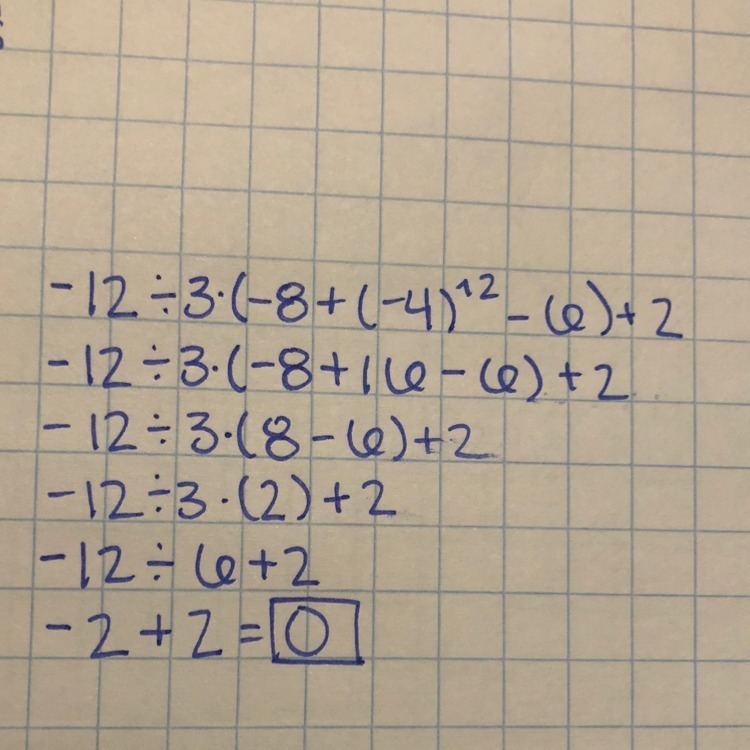 -12÷3·(-8+(-4)¹²-6)+2
-12÷3·(-8+16-6)+2
-12÷3·(8-6)+2
-12÷3·(2)+2
-12÷6+2
-2+2=0